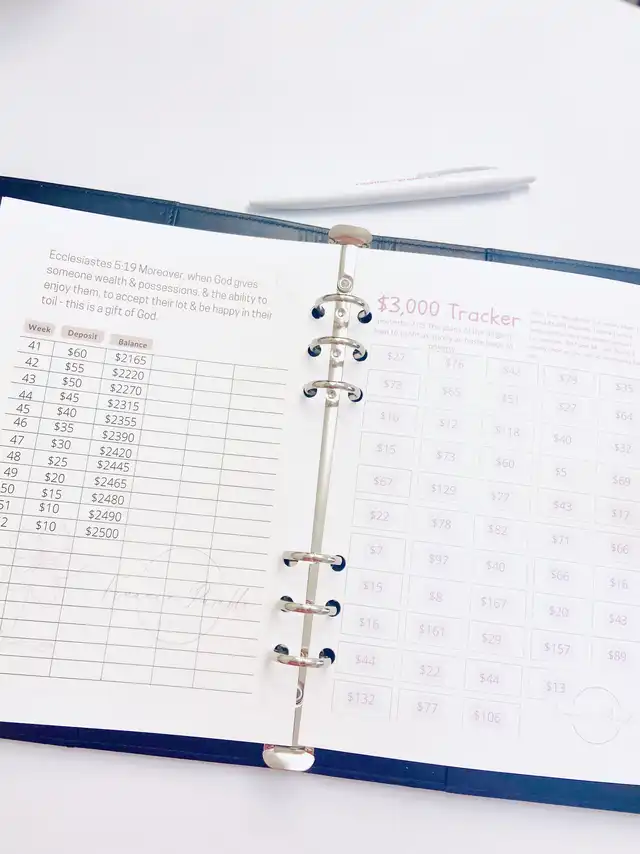 Ecclesiastes 5:19 Moreover, when God gives
someone wealth & possessions, & the ability to
enjoy them, to accept their lot & be happy in their
toil - this is a gift of God.
Week Deposit Balance
41 $60 $2165
42 $55 $2220
43 $50 $2270
44 $45 $2315
45 $40 $2355
46 $35 $2390
47 $30 $2420
48 $25 $2445
49 $20 $2465
50 $15 $2480
51 $10 $2490
2 $10 $2500
$3,000 Tracker
$76 $42 $29 $35
$65 $51 $27 $64
$16 $12 $118 $40 $32
$15 $73 $60 $5 $69
$67 $129 $27 $43 $17
$22 $78 $82 $71 $66
$7 $97 $40 $66 $16
$15 $8 $167 $20 $43
$16 $161 $29 $157 $88
$44 $22 $44 $13
$132 $77 $106